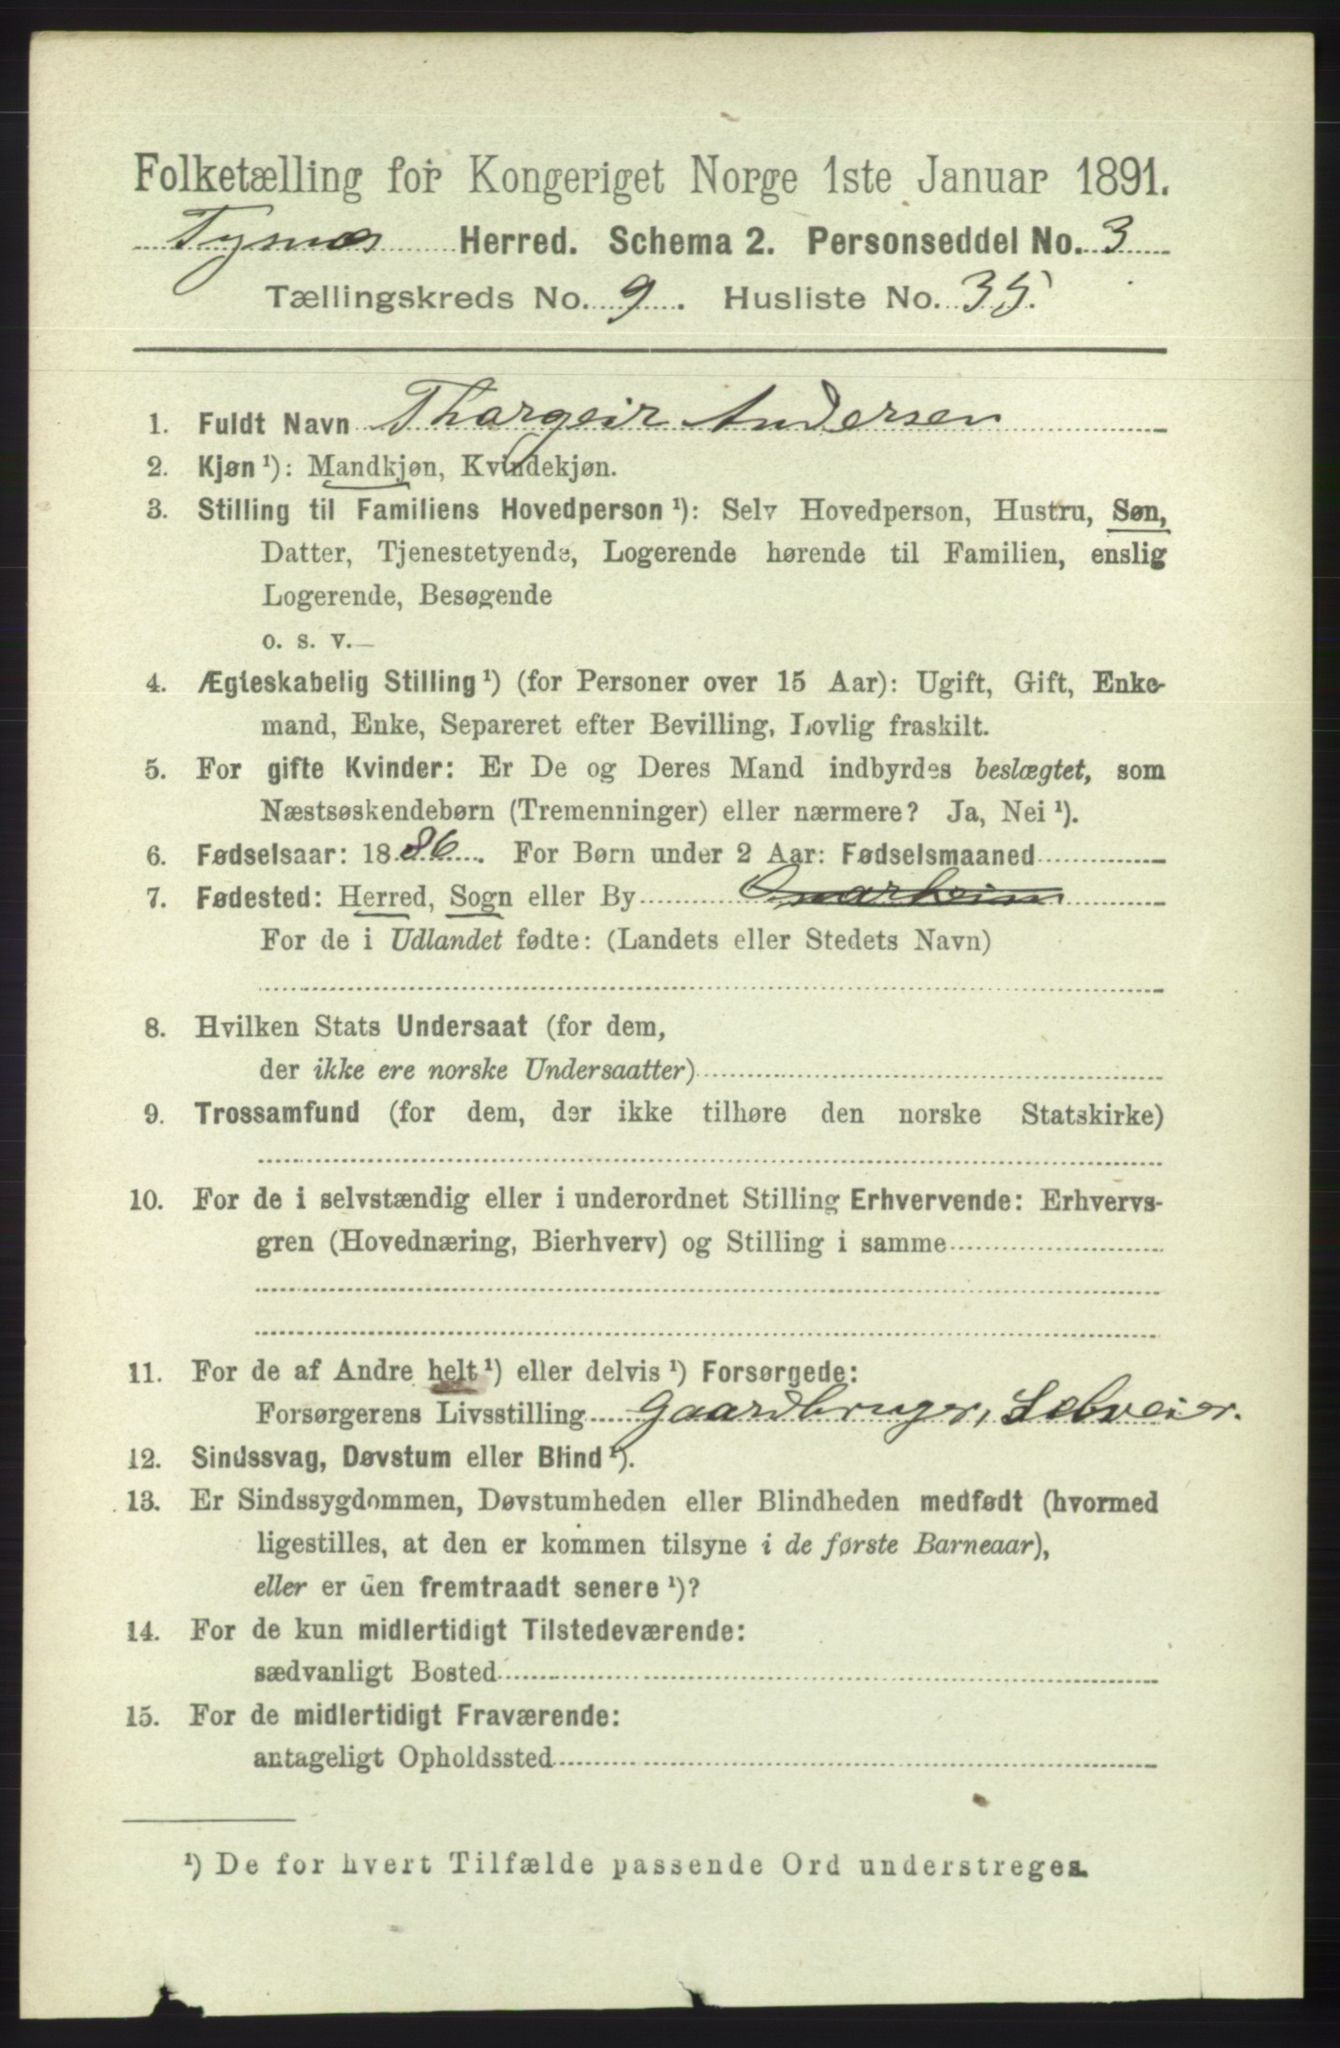 Folketælling for Kongeriget Norge 1ste Januar 1891.
Tysnes Herred. Schema 2. Personseddel No. 3
Tællingskreds No. 9. Husliste No. 35.
1. Fuldt Navn Thorgeir Andersen
2. Kjøn¹): Mandkjøn, Kvindekjøn.
3. Stilling til Familiens Hovedperson¹): Selv Hovedperson, Hustru, Søn,
Datter, Tjenestetyende, Logerende hørende til Familien, enslig
Logerende, Besøgende
o. s. v.
4. Ægteskabelig Stilling¹) (for Personer over 15 Aar): Ugift, Gift, Enke-
mand, Enke, Separeret efter Bevilling, Lovlig fraskilt.
5. For gifte Kvinder: Er De og Deres Mand indbyrdes beslægtet, som
Næstsøskendebørn (Tremenninger) eller nærmere? Ja, Nei¹).
6. Fødselsaar: 1886. For Børn under 2 Aar: Fødselsmaaned
7. Fødested: Herred, Sogn eller By Onarheim
For de i Udlandet fødte: (Landets eller Stedets Navn)
8. Hvilken Stats Undersaat (for dem,
der ikke ere norske Undersaatter)
9. Trossamfund (for dem, der ikke tilhøre den norske Statskirke)
10. For de i selvstændig eller i underordnet Stilling Erhvervende: Erhvervs-
gren (Hovednæring, Bierhverv) og Stilling i samme
11. For de af Andre helt¹) eller delvis¹) Forsørgede:
Forsørgerens Livsstilling Gaardbruger, Selveier.
12. Sindssvag, Døvstum eller Blind¹).
13. Er Sindssygdommen, Døvstumheden eller Blindheden medfødt (hvormed
ligestilles, at den er kommen tilsyne i de første Barneaar),
eller er den fremtraadt senere¹)?
14. For de kun midlertidigt Tilstedeværende:
sædvanligt Bosted
15. For de midlertidigt Fraværende:
antageligt Opholdssted
¹) De for hvert Tilfælde passende Ord understreges.